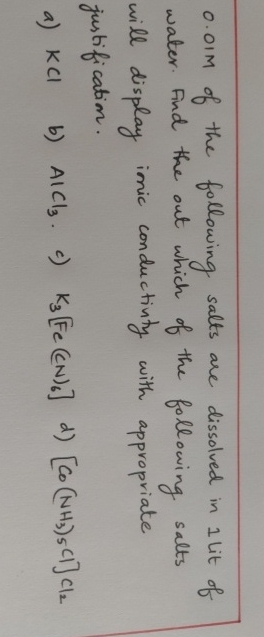 0.01M of the following salts are dissolved in 1 Lit of
water. Find the out which of the following salts
will display ionic conductivity with appropriate
justification.
a) KCl b) AlCl3. c) K3[Fe(CN)6] d) [Co(NH3)5Cl]Cl2